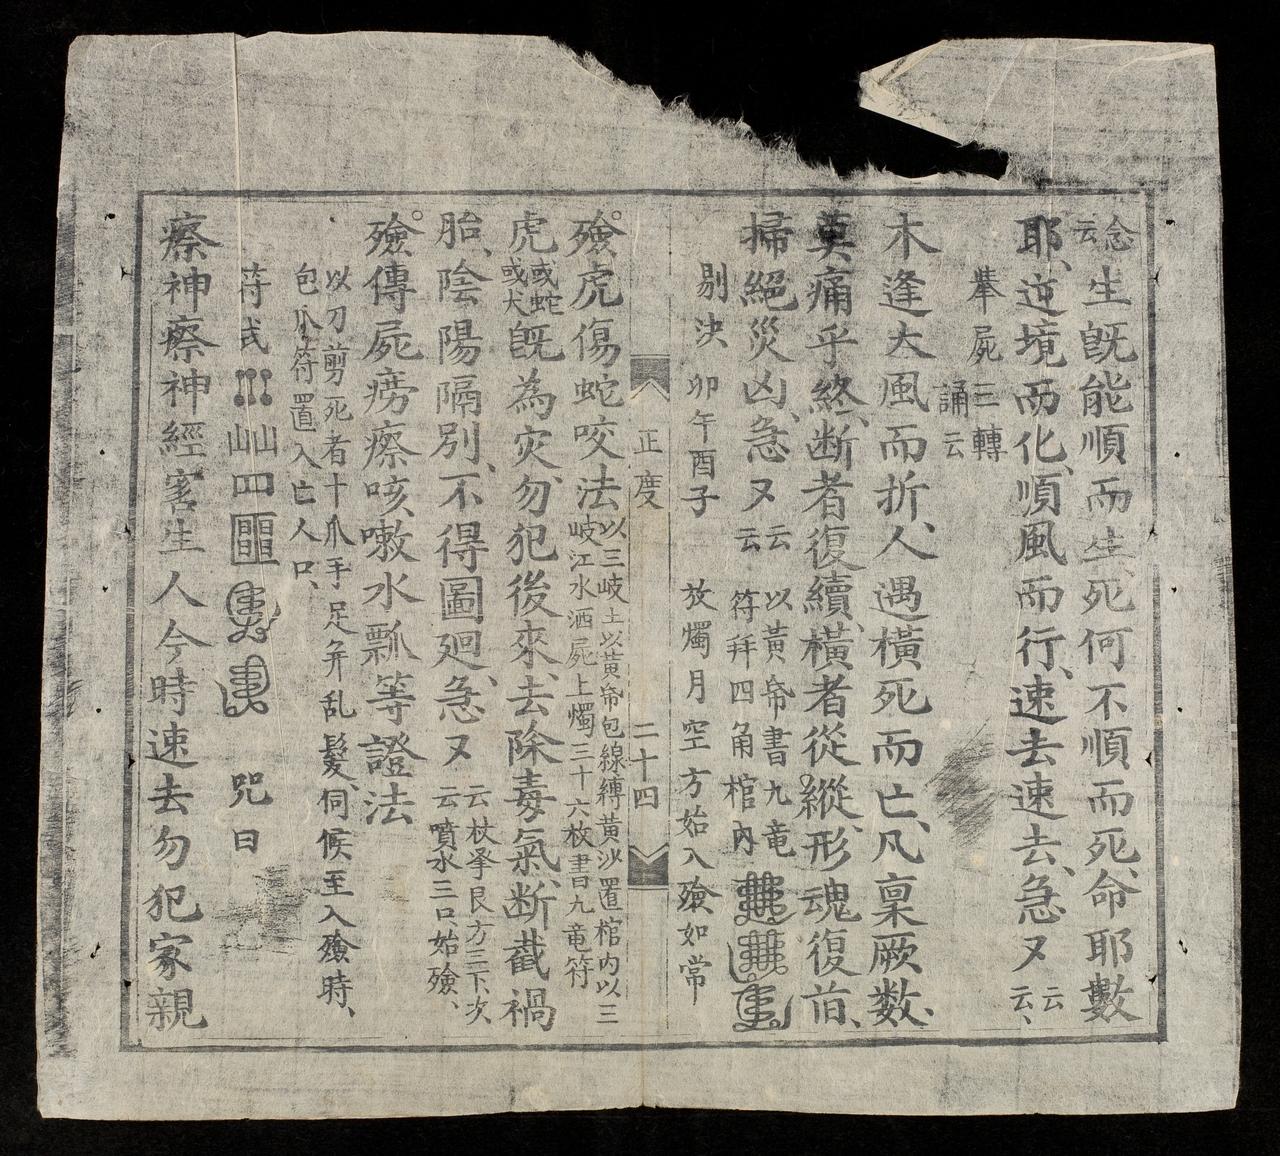 念云生既能順而生、死何不順而死、命耶數
耶、逆境而化、順風而行、速去速去、急又云云、
舉屍三轉誦云
木逢大風而折、人遇橫死而亡、凡稟厥数、
莫痛乎終、断者復續、橫者從縱、形魂復前、
掃絕災凶、急又云云以黃帋書九竜符拜四角棺內
剔決 卯午酉子 放燭月空方始入殮如常
正度 二十四
殮虎傷蛇咬法以三岐土以黃帋包線縛黃沙置棺内以三岐江水洒屍上燭三十六枚書九竜符
虎或蛇或犬既為灾、勿犯後來、去除毒氣、断截禍
胎、陰陽隔別、不得圖廻、急又云云杖拏艮方三下、次噴水三口始殮、
殮傳屍癆瘵咳嗽水瓢等證法
以刀剪死者十爪手足弁乱髮、伺候至入殮時、
包爪符置入亡人口、
符式 咒曰
瘵神瘵神經害生人今時速去勿犯家親